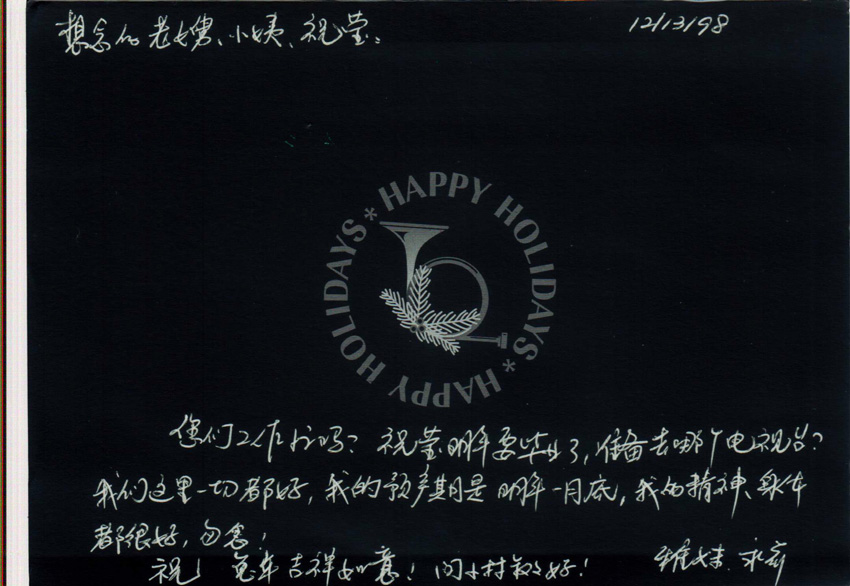 想念的老舅、小姨、祝莹:
12/13/98
* HAPPY HOLIDAYS * HAPPY HOLIDAYS
您们工作忙吗?祝莹明年要毕业了,准备去哪个电视台?
我们这里一切都好,我的预产期是明年一月底,我的精神、身体
都很好,勿念!
祝 兔年吉祥如意!问小村 好!